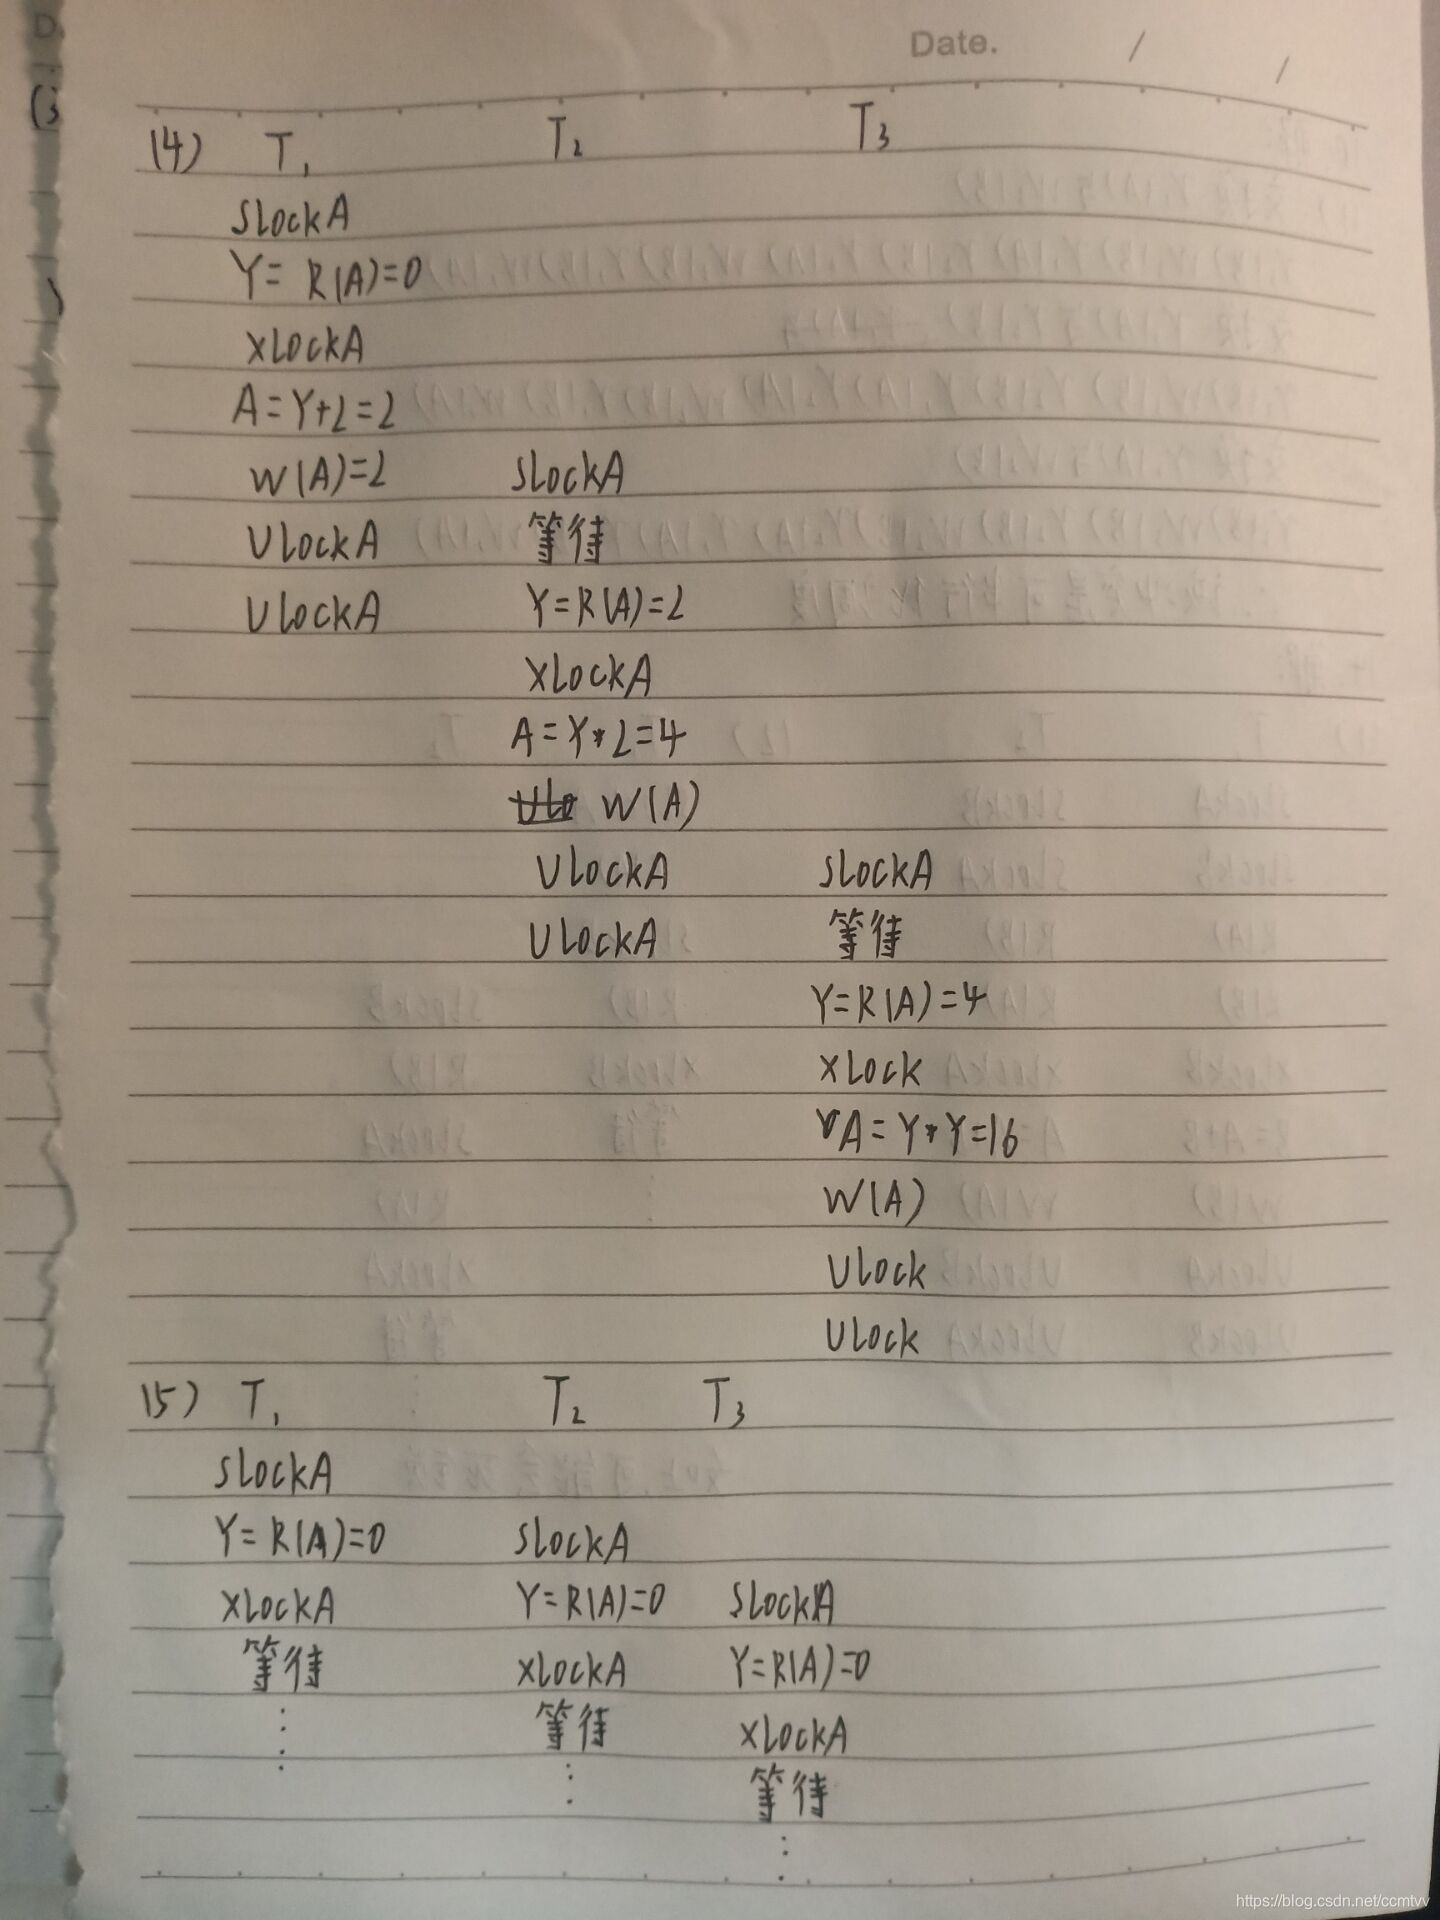 Date. / /
(4) T1 T2 T3
SLockA
Y=R(A)=0
XLockA
A=Y+2=2
W(A)=2 SLockA
ULockA 等待
ULockA Y=R(A)=2
XLockA
A=Y*2=4
W(A)
ULockA SLockA
ULockA 等待
Y=R(A)=4
XLock
A=Y*Y=16
W(A)
ULock
ULock
(5) T1 T2 T3
SLockA
Y=R(A)=0 SLockA
XLockA Y=R(A)=0 SLockA
等待 XLockA Y=R(A)=0
⋮ 等待 XLockA
⋮ 等待
⋮
https://blog.csdn.net/ccmtvv